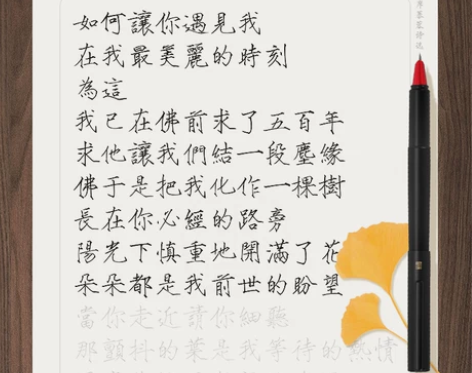 如何讓你遇見我
在我最美麗的時刻
為這
我已在佛前求了五百年
求他讓我們結一段塵緣
佛于是把我化作一棵樹
長在你必經的路旁
陽光下慎重地開滿了花
朵朵都是我前世的盼望
當你走近請你細聽
那顫抖的葉是我等待的熱情